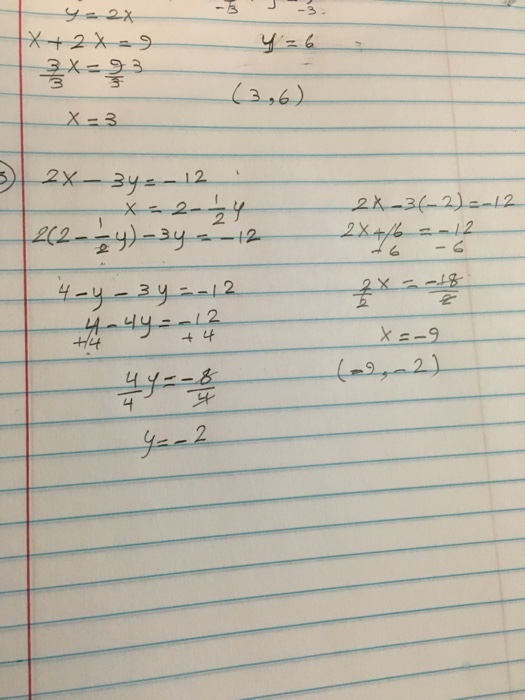 y = 2x
x + 2x = 9
3/3 x = 9/3 3
x = 3
-3 -3
y = 6
(3,6)
2x - 3y = -12
x = 2 - 1/2 y
2(2 - 1/2 y) - 3y = -12
4 - y - 3y = -12
4 - 4y = -12
+4 +4
4/4 y = -8/4
y = -2
2x - 3(-2) = -12
2x + 6 = -12
-6 -6
2/2 x = -18/2
x = -9
(-9, -2)